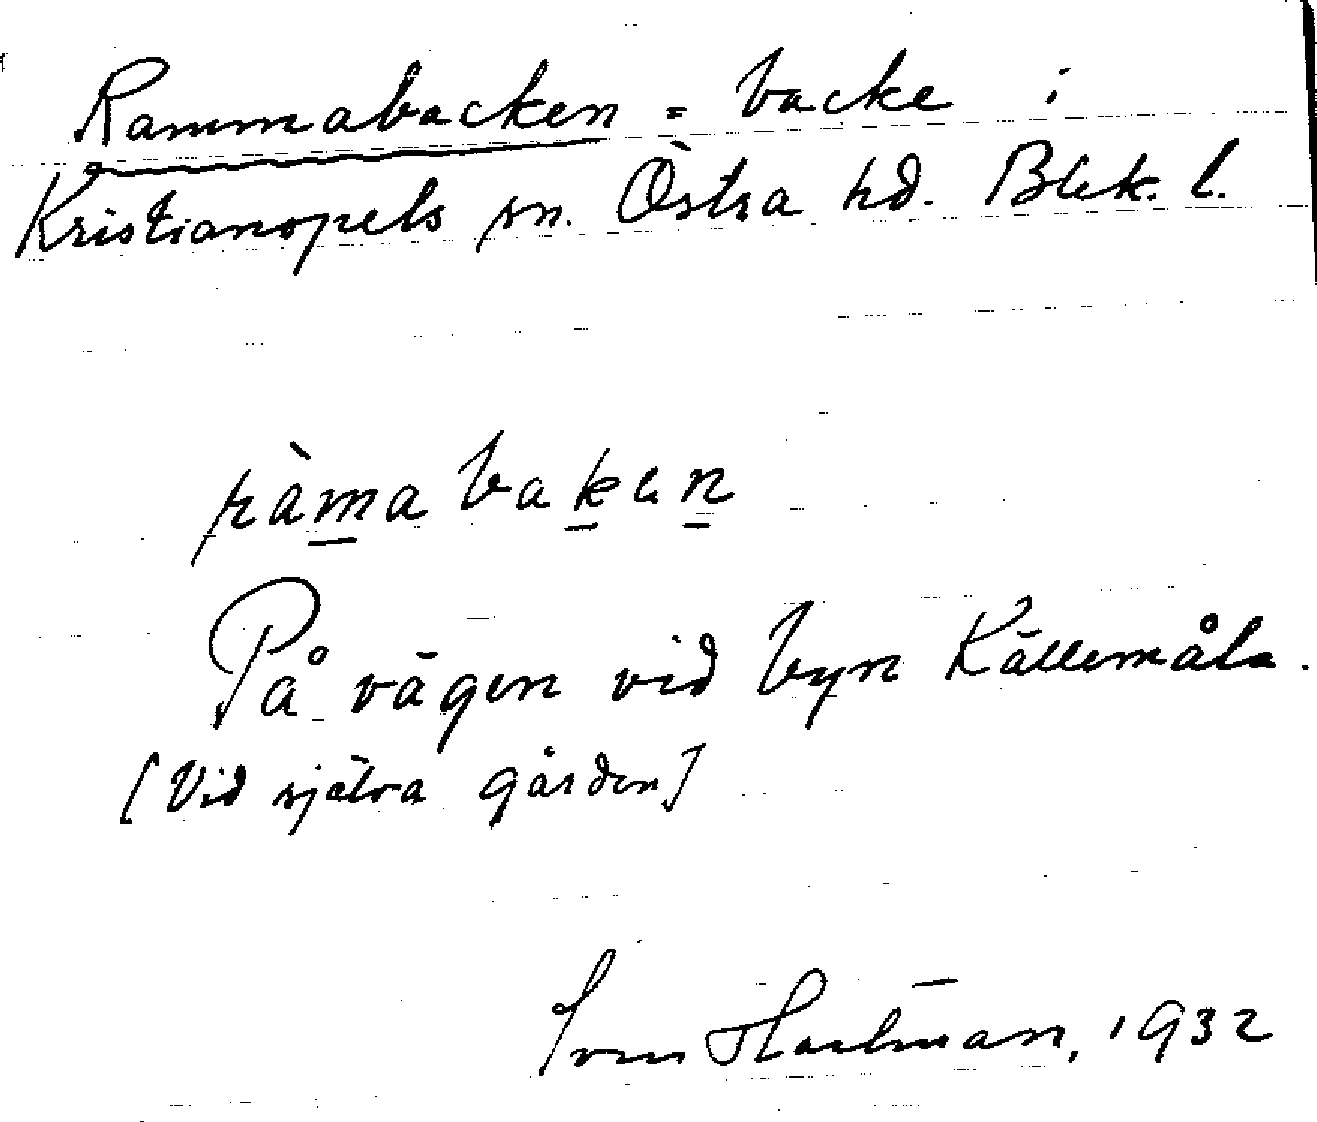 Rammabacken = backe i
Kristianopels sn. Östra hd. Blek. l.
ràmabaken
På vägen vid byn Källemåla.
[Vid själva gården]
Sven Hartman, 1932